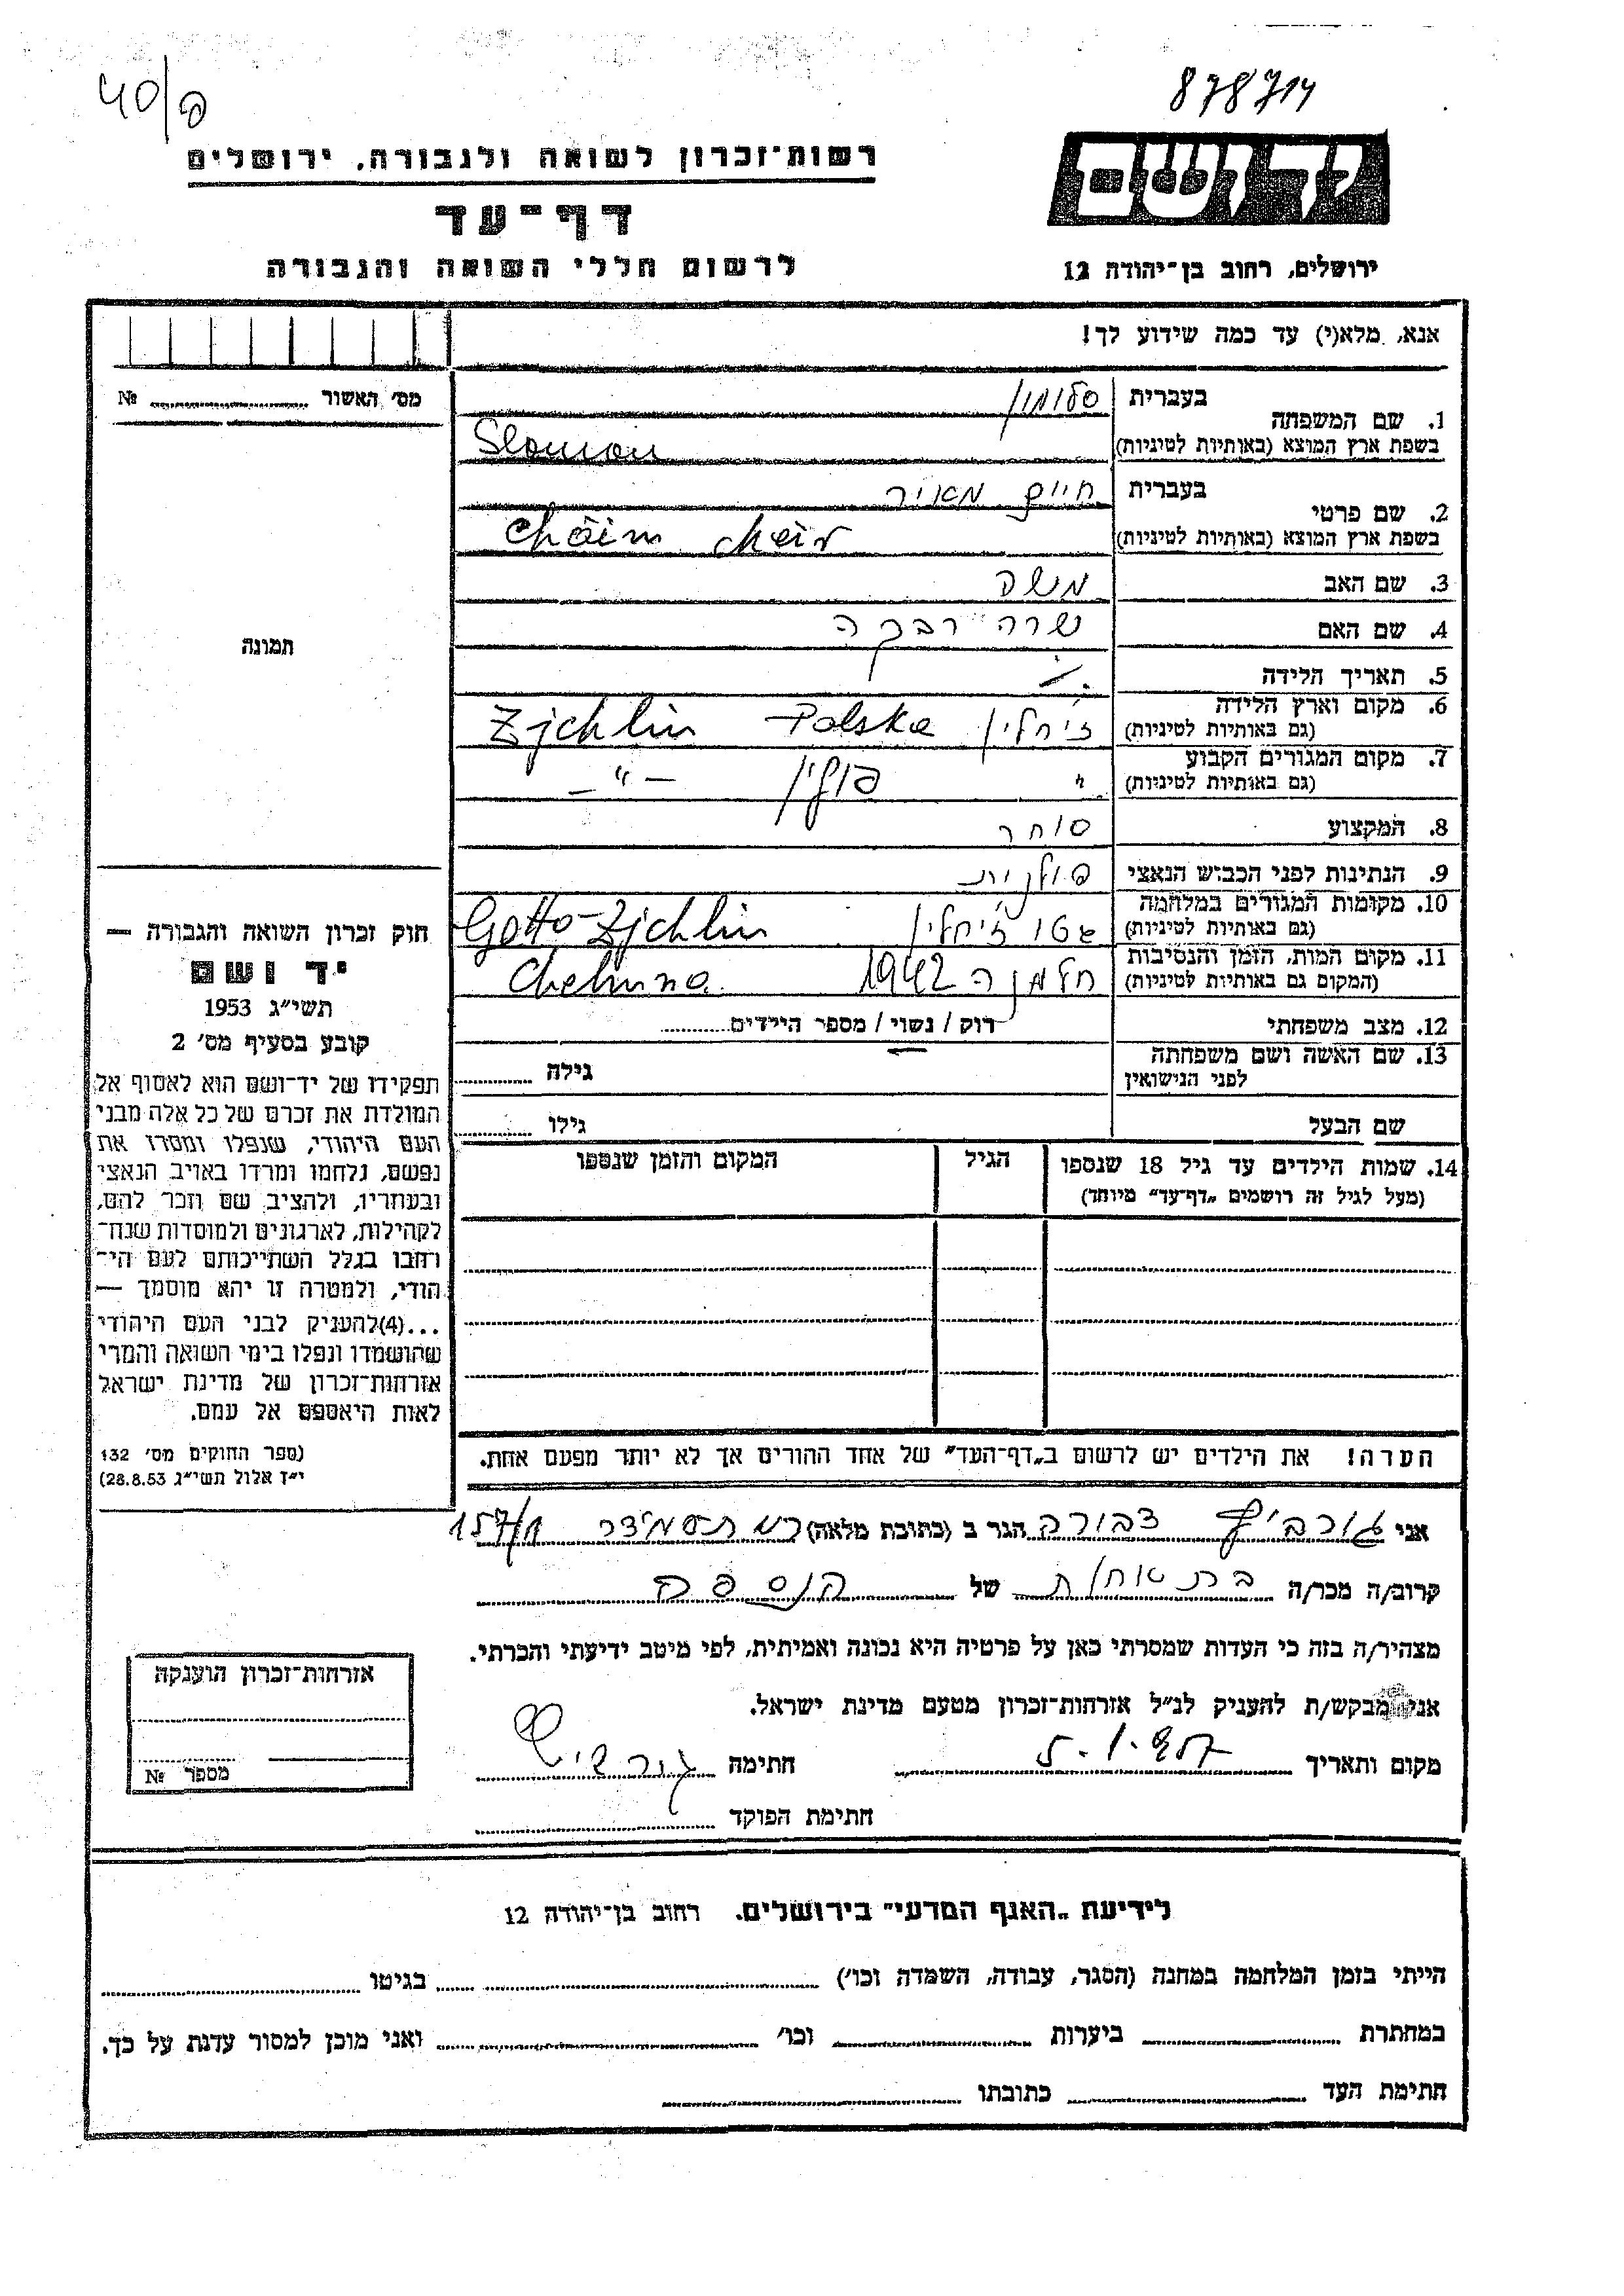 40/פ
878714
רשות־זכרון לשואה ולגבורה, ירושלים
יד ושם
דף־עד
לרשום חללי השואה והגבורה
ירושלים, רחוב בן־יהודה 12
אנא, מלא(י) עד כמה שידוע לך!
מס׳ האשור № 
1. שם המשפחה
בעברית סלומון
בשפת ארץ המוצא (באותיות לטיניות) Slomon
2. שם פרטי
בעברית חיים מאיר
בשפת ארץ המוצא (באותיות לטיניות) Chaim Meir
3. שם האב משה
4. שם האם שרה רבקה
5. תאריך הלידה
6. מקום וארץ הלידה
(גם באותיות לטיניות) ז׳יחלין Polska Zjchlin
7. מקום המגורים הקבוע
(גם באותיות לטיניות) " פולין –"–
8. המקצוע סוחר
9. הנתינות לפני הכבוש הנאצי פולנית
10. מקומות המגורים במלחמה
(גם באותיות לטיניות) גטו ז׳יחלין Getto-Zjchlin
11. מקום המות, הזמן והנסיבות
(המקום גם באותיות לטיניות) חלמנה 1942 Chelmna
12. מצב משפחתי רווק / נשוי / מספר הילדים
13. שם האשה ושם משפחתה
לפני הנישואין גילה
שם הבעל גילו
14. שמות הילדים עד גיל 18 שנספו
(מעל לגיל זה רושמים „דף־עד” מיוחד)
הגיל
המקום והזמן שנספו
הערה! את הילדים יש לרשום ב„דף־העד” של אחד ההורים אך לא יותר מפעם אחת.
תמונה
חוק זכרון השואה והגבורה —
יד ושם
תשי״ג 1953
קובע בסעיף מס׳ 2
תפקידו של יד־ושם הוא לאסוף אל
המולדת את זכרם של כל אלה מבני
העם היהודי, שנפלו ומסרו את
נפשם, נלחמו ומרדו באויב הנאצי
ובעוזריו, ולהציב שם וזכר להם,
לקהילות, לארגונים ולמוסדות שנח־
רבו בגלל השתייכותם לעם הי־
הודי, ולמטרה זו יהא מוסמך —
...(4)להעניק לבני העם היהודי
שהושמדו ונפלו בימי השואה והמרי
אזרחות־זכרון של מדינת ישראל
לאות היאספם אל עמם.
(ספר החוקים מס׳ 132
י״ז אלול תשי״ג 28.8.53)
אני גורביץ דבורה הגר ב (כתובת מלאה) 157/1
קרוב/ה מכר/ה בת אחות של הנספה
מצהיר/ה בזה כי העדות שמסרתי כאן על פרטיה היא נכונה ואמיתית, לפי מיטב ידיעתי והכרתי.
אני מבקש/ת להעניק לנ״ל אזרחות־זכרון מטעם מדינת ישראל.
מקום ותאריך 5.1.957 חתימה גורביץ
חתימת הפוקד
אזרחות־זכרון הוענקה
מספר №
לידיעת „האגף המדעי” בירושלים, רחוב בן־יהודה 12
הייתי בזמן המלחמה במחנה (הסגר, עבודה, השמדה וכו׳) בגיטו
במחתרת ביערות וכו׳ ואני מוכן למסור עדות על כך.
חתימת העד כתובתו